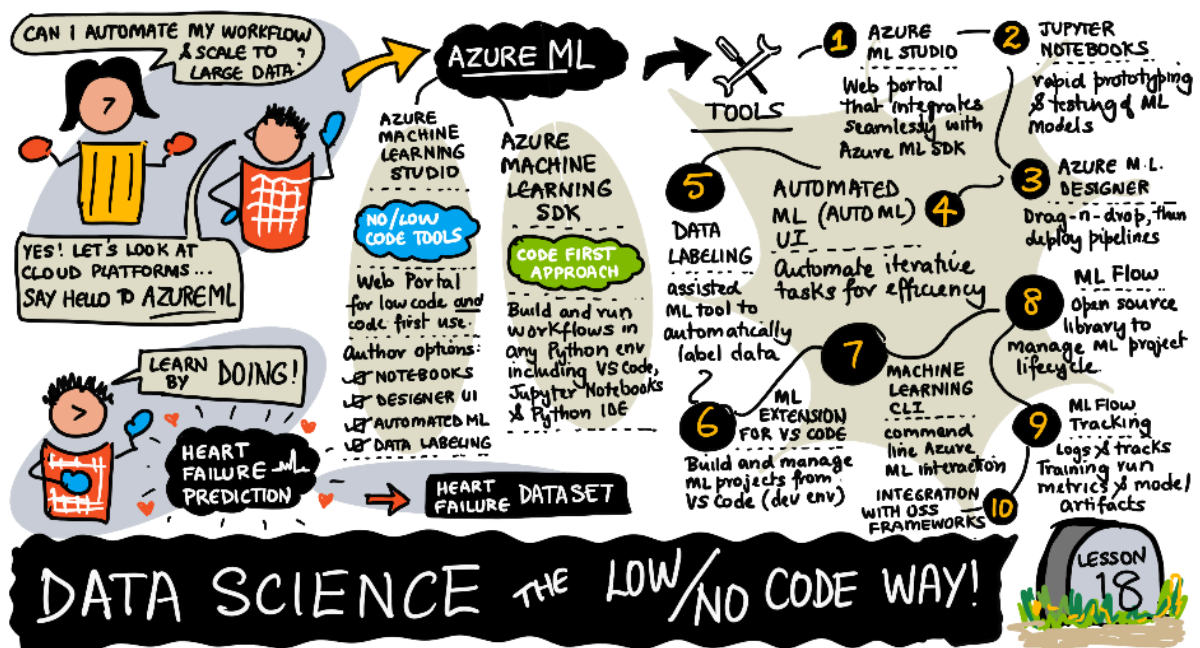 CAN I AUTOMATE MY WORKFLOW
& SCALE TO
LARGE DATA?
YES! LET'S LOOK AT
CLOUD PLATFORMS...
SAY HELLO TO AZURE ML
LEARN
BY DOING!
HEART
FAILURE
PREDICTION
HEART
FAILURE DATASET
AZURE ML
AZURE
MACHINE
LEARNING
STUDIO
NO/LOW
CODE TOOLS
Web Portal
for low code and
code first use.
Author options:
NOTEBOOKS
DESIGNER UI
AUTOMATED ML
DATA LABELING
AZURE
MACHINE
LEARNING
SDK
CODE FIRST
APPROACH
Build and run
workflows in
any Python env
including VS Code,
Jupyter Notebooks
& Python IDE
TOOLS
1 AZURE
ML STUDIO
Web portal
that integrates
seamlessly with
Azure ML SDK
2 JUPYTER
NOTEBOOKS
rapid prototyping
& testing of ML
models
3 AZURE M.L.
DESIGNER
Drag-n-drop, then
deploy pipelines
AUTOMATED
ML (AUTO ML) 4
UI
Automate iterative
tasks for efficiency
5
DATA
LABELING
assisted
ML tool to
automatically
label data
6 ML
EXTENSION
FOR VS CODE
Build and manage
ML projects from
VS Code (dev env)
7
MACHINE
LEARNING
CLI
command
line Azure
ML interaction
8 ML Flow
Open source
library to
manage ML project
lifecycle.
9 ML Flow
Tracking
Logs & tracks
Training run
metrics & model
artifacts
INTEGRATION
WITH OSS 10
FRAMEWORKS
DATA SCIENCE THE LOW/NO CODE WAY!
LESSON
18